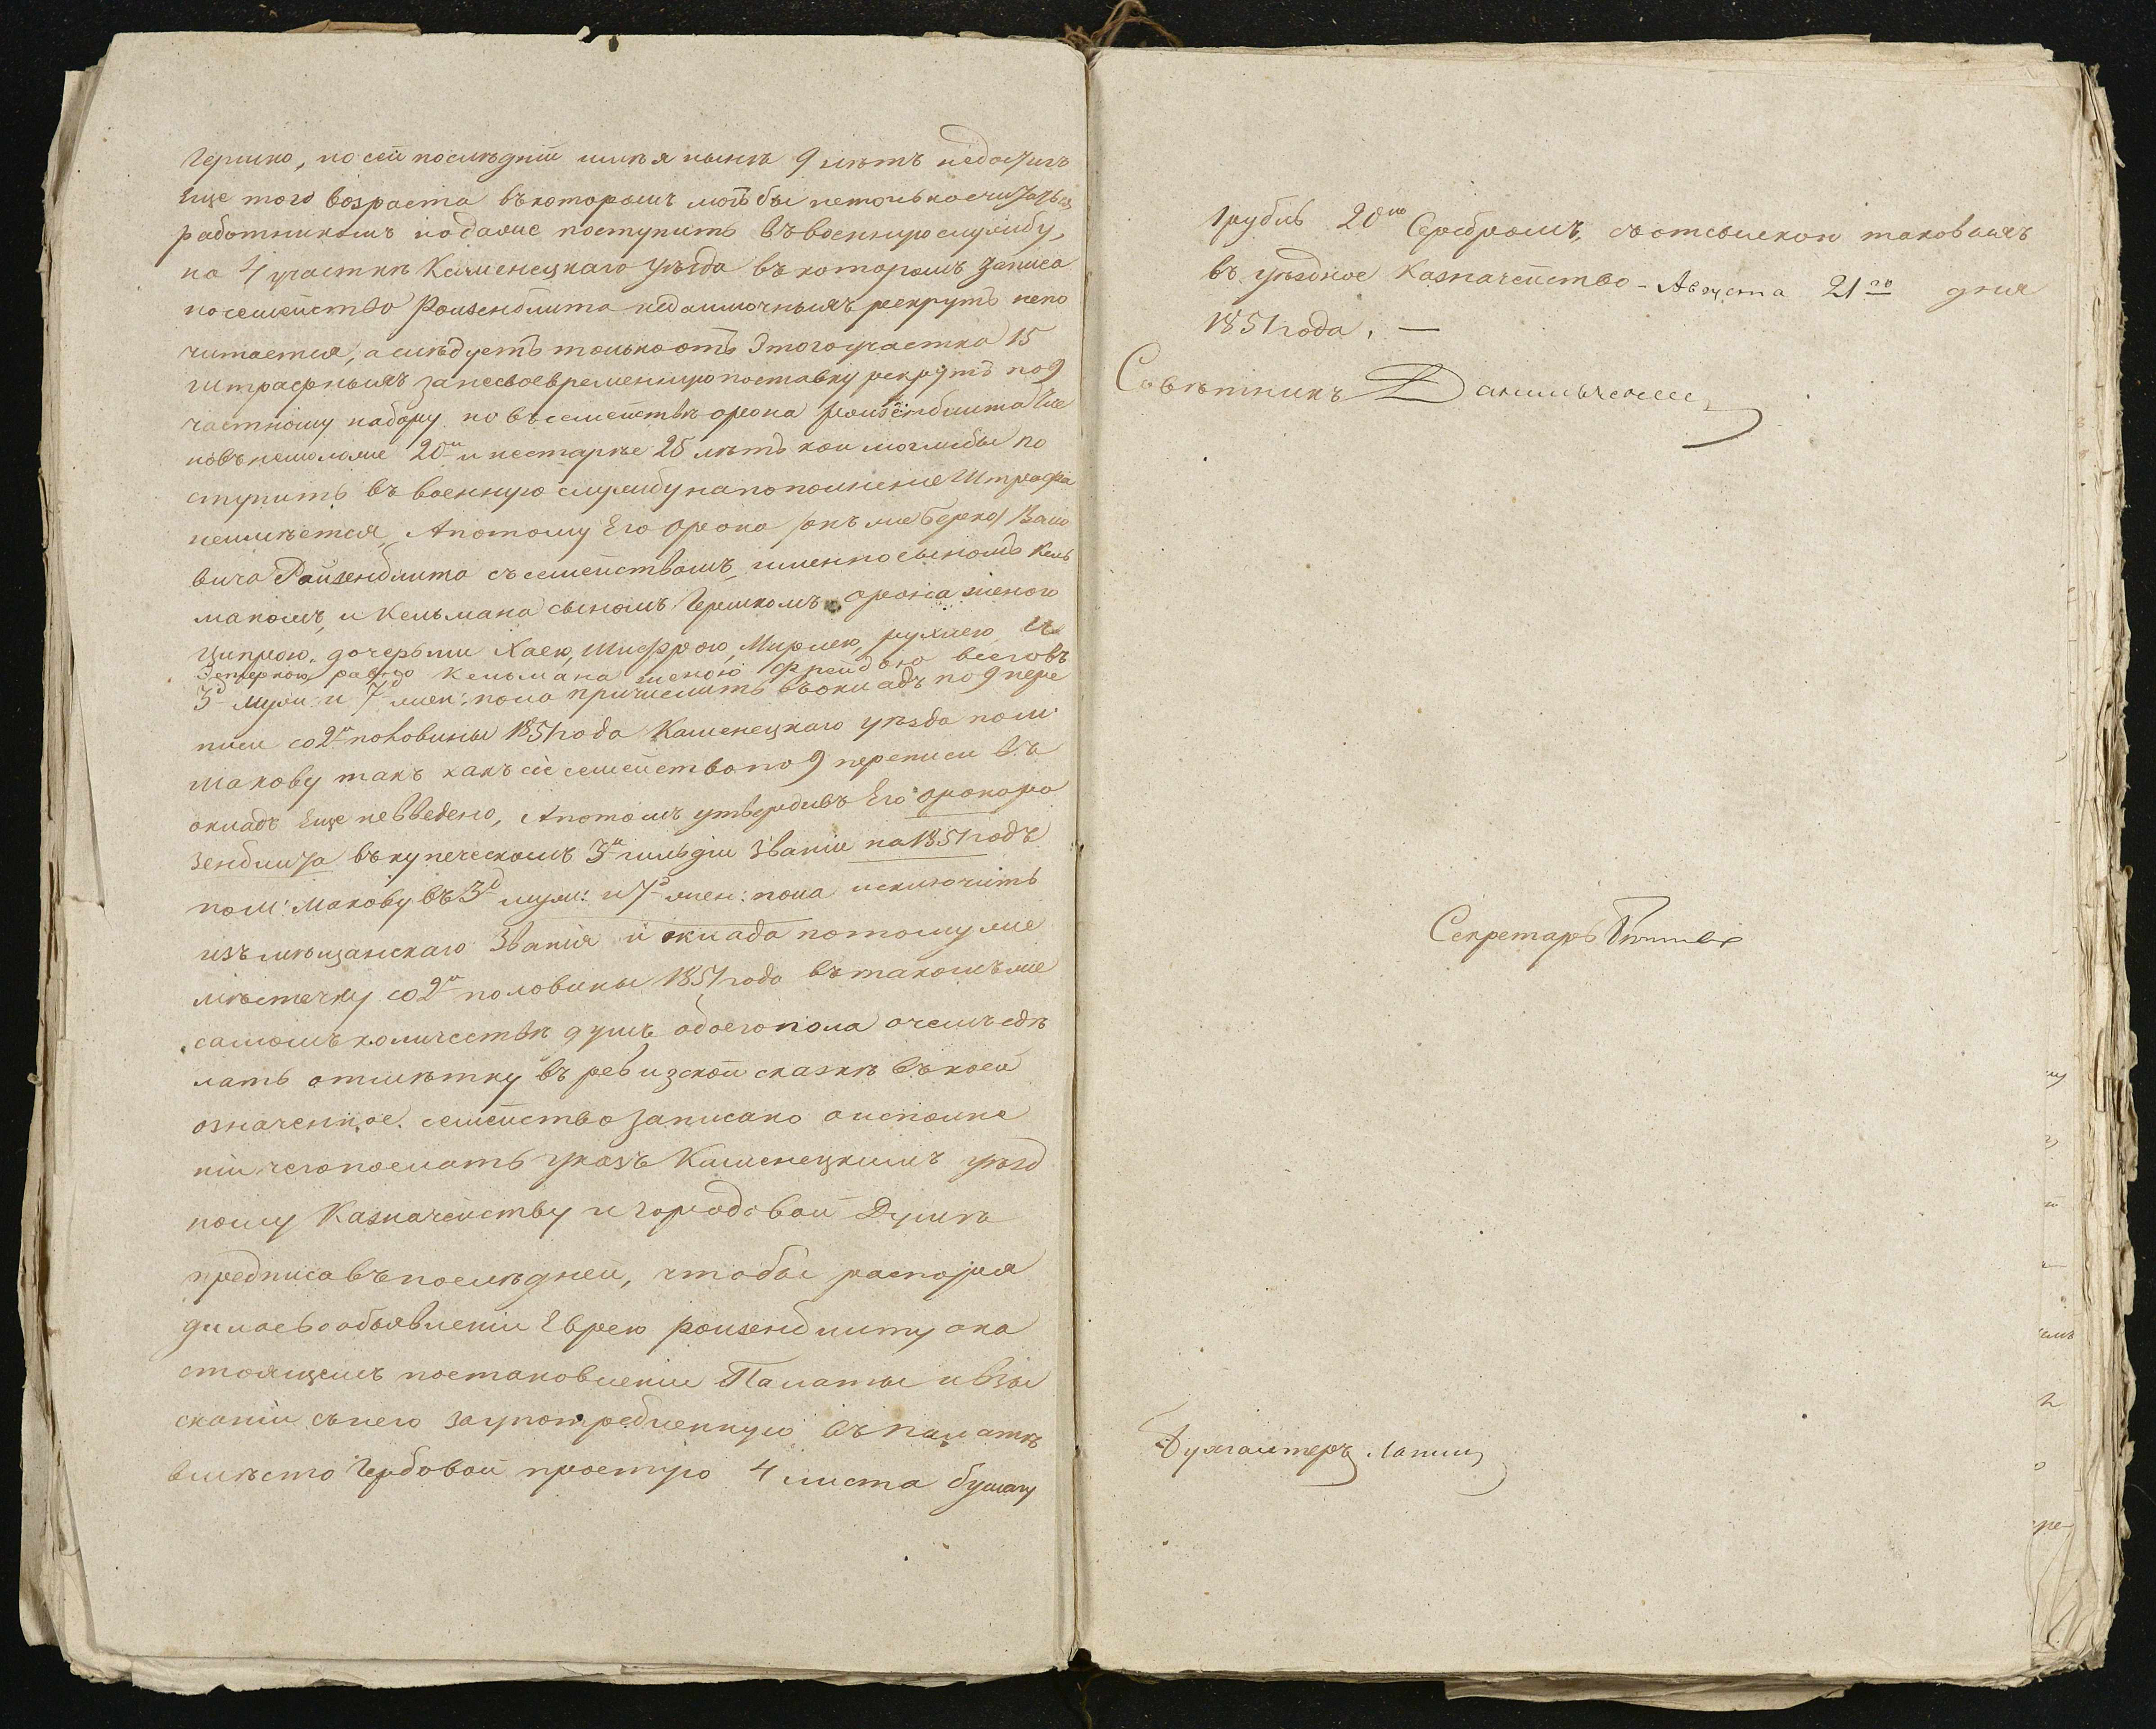 Гершко, но сей последній имѣя нынѣ 9 лѣтъ недостигъ
Еще того возраста въ которомъ могъ бы нетолько считаться
работникомъ но даже поступить въ военную службу,
на 4 участкѣ Каменецкаго уѣзда въ которомъ записа
но семейство Ройзенблита недоимочныхъ рекрутъ непо
читается, а слѣдуетъ только отъ Этого участка 15
штрафныхъ за несвоевременную поставку рекрутъ по 9
частному набору но въ семействѣ орона Ройзенблита Чле
новъ немоложе 20ти и нестарѣе 25 лѣтъ кои моглибы по
ступить въ военную службу на пополненіе Штрафа
неимѣется, Апотому Его орона /онъ же Берко/
вича Ройзенблита съ семействомъ, именно сыномъ Кель
маномъ, и Кельмана сыномъ Гершкомъ орона женою
Ципрою, дочерьми Хаею, Шифрою, Мирлею, рухлею, и
равно Кельмана женою Фрейдою всего въ
3д муж: и 7д жен: пола причислить въ окладъ по 9 пере
писи со 2й половины 1851 года Каменецкаго уѣзда по м:
Макову такъ какъ сіе семейство по 9 переписи въ
окладъ Еще невведено, Апотомъ утвердивъ Его орона ро
зенблита въ купеческомъ 3й гильдіи званіи на 1851 годъ
по м: Макову въ 3д муж: и 7д жен: пола исключить
изъ мѣщанскаго Званія и оклада потомуже
мѣстечку со 2й половины 1851 года въ такомъ же
самомъ количествѣ душъ обоего пола о чемъ сдѣ
лать отмѣтку въ ревизской сказкѣ въ коей
означенное семейство записано о исполне
ніи чего послать указъ Каменецкимъ уѣзд
ному Казначейству и городовой Думѣ
предписавъ последней, чтобы распоря
дилась о объявленіи Еврею Ройзенблиту о на
стоящемъ постановленіи Палаты и взы
сканіи съ него за употребленную въ палатѣ
вмѣсто гербовой простую 4 листа бумагу
1 рубль 20ть Серебромъ, съ отсылкою таковыхъ
въ уѣздное Казначейство - Августа 21го дня
1851 года. —
Совѣтникъ
Секретарь
Бухгалтеръ